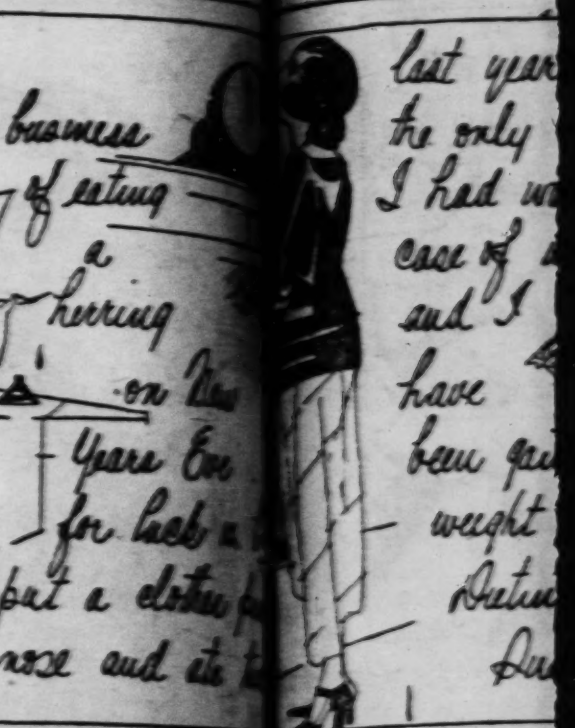 business
of eating
a
herring
on New
Years Eve
for luck
put a clothes
nose and ate
last year
the only
I had
case of
and I
have
been
weight